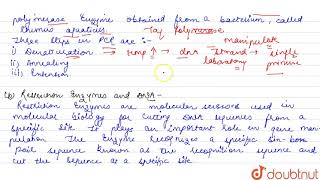 polymerase Enzyme obtained from a bacterium, called
thermus aquaticus. Taq Polymerase
Three steps in PCR are :- manipulate
i) Denaturation → temp↑ → dna strand → single
ii) Annealing laboratory
iii) Extension
(b) Restriction Enzymes and DNA-
Restriction Enzymes are molecular scissors used in
molecular biology for cutting DNA sequences from a
specific site. It plays an important role in gene mani-
pulation. The Enzyme recognizes a specific six-box
pair sequence known as the recognition sequence and
cut the sequence at a specific site.
doubtnut